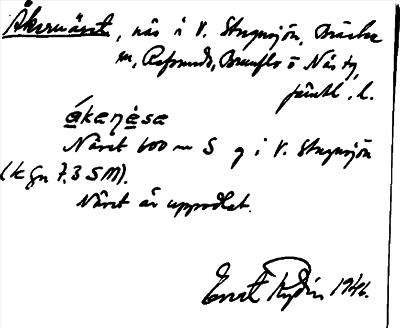 Åkernäset, näs i V. Stugusjön, Bräcke
sn, Refsunds, Brunflo o Näs tg,
Jämtl. l.
ákeŋèsa
Näset 600 m S g i V. Stugusjön
(k Gn 7.3 SM).
Näset är uppodlat.
Ernst Rydin 1946.